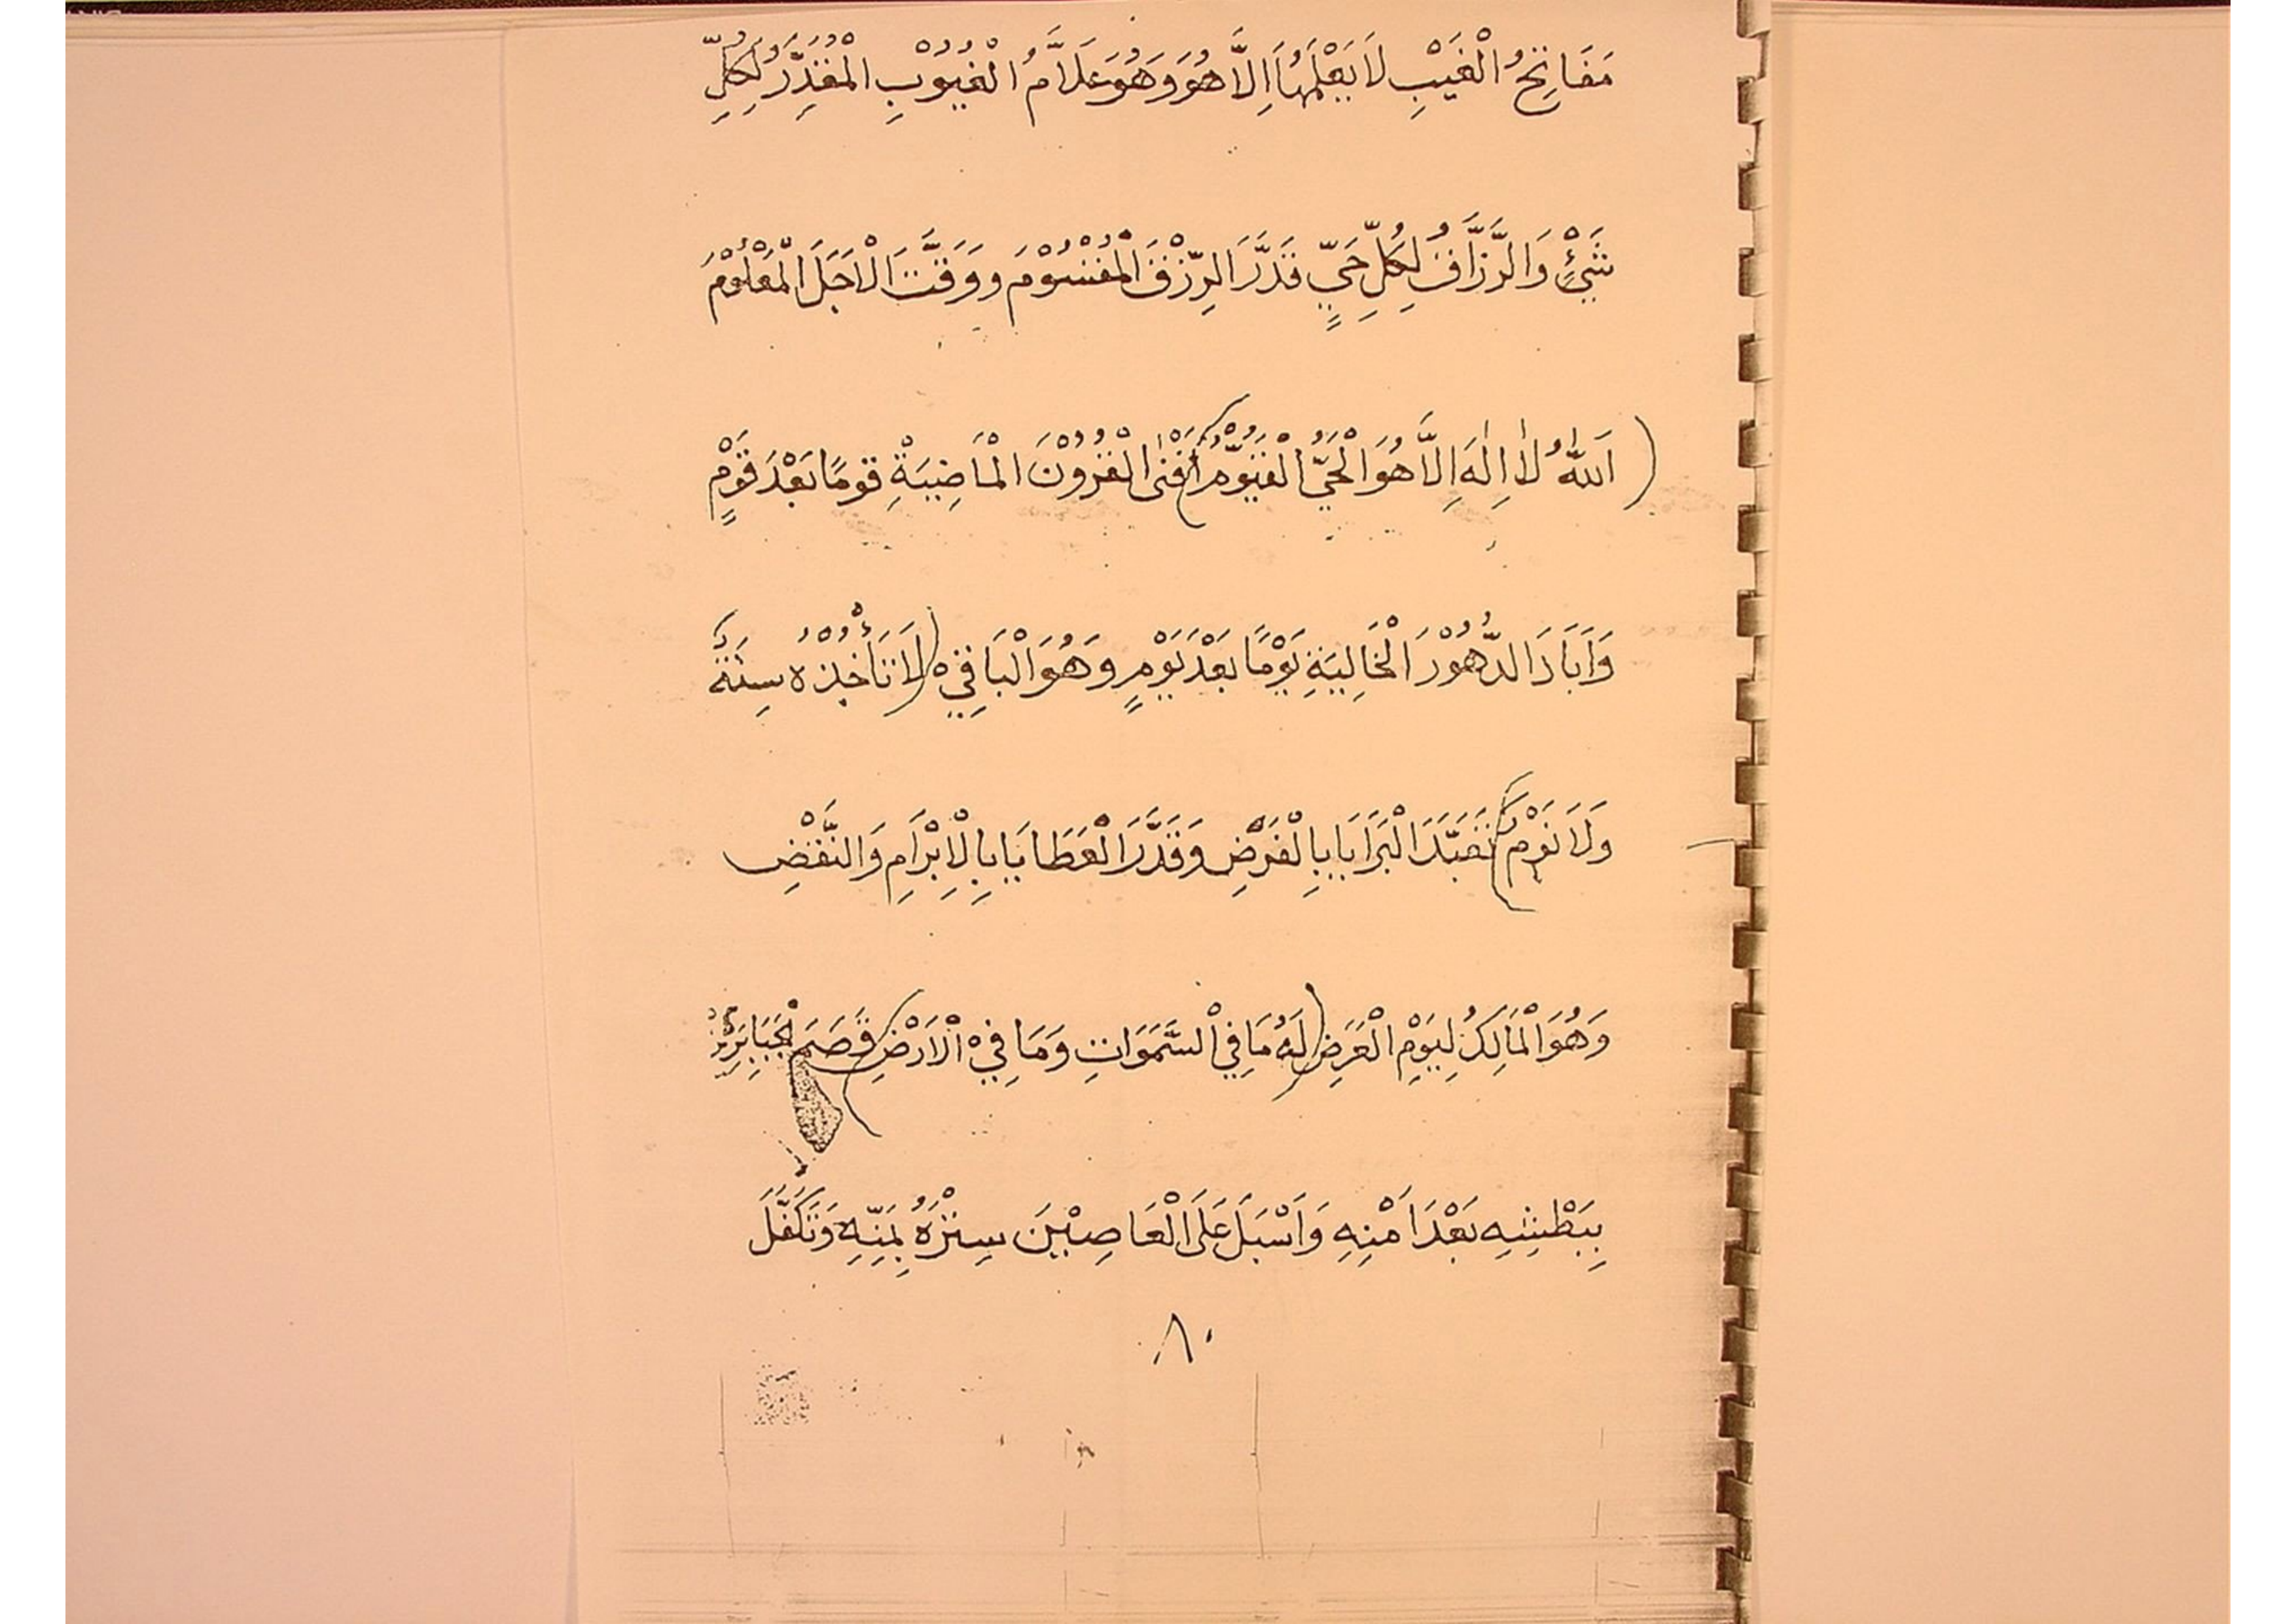 مَفَاتِحُ الْغَيْبِ لَا يَعْلَمُهَا اِلَّا هُوَ وَهُوَ عَلَّامُ الْغُيُوْبِ الْمُقْتَدِرُ لِكُلِّ
شَيْءٍ وَالرَّزَّاقُ لِكُلِّ حَيٍّ قَدَّرَ الرِّزْقَ الْمَقْسُوْمَ وَوَقَّتَ الْاَجَلَ الْمَعْلُوْمَ
( اَللّٰهُ لَا اِلٰهَ اِلَّا هُوَ الْحَيُّ الْقَيُّوْمُ ) اَفْنَى الْقُرُوْنَ الْمَاضِيَةِ قومًا بَعْدَ قَوْمٍ
وَاَبَادَ الدُّهُوْرَ الْخَالِيَةِ يَوْمًا بَعْدَ يَوْمٍ وَهُوَ الْبَاقِيْ ( لَا تَأْخُذُهُ سِنَةٌ
وَلَا نَوْمٌ ) تَعَبَّدَ الْبَرَايَا بِالْفَرْضِ وَقَدَّرَ الْعَطَايَا بِالْاِبْرَامِ وَالنَّقْضِ
وَهُوَ الْمَالِكُ لِيَوْمِ الْعَرْضِ ( لَهُ مَا فِي السَّمَوَاتِ وَمَا فِيْ الْاَرْضِ ) قَصَمَ الْجَبَابِرَةَ
بِبَطْشِهِ بَعْدَ اَمْنِهِ وَاَسْبَلَ عَلَى الْعَاصِيْنَ سِتْرَهُ بِمَنِّهِ وَتَكَفَّلَ
٨٠